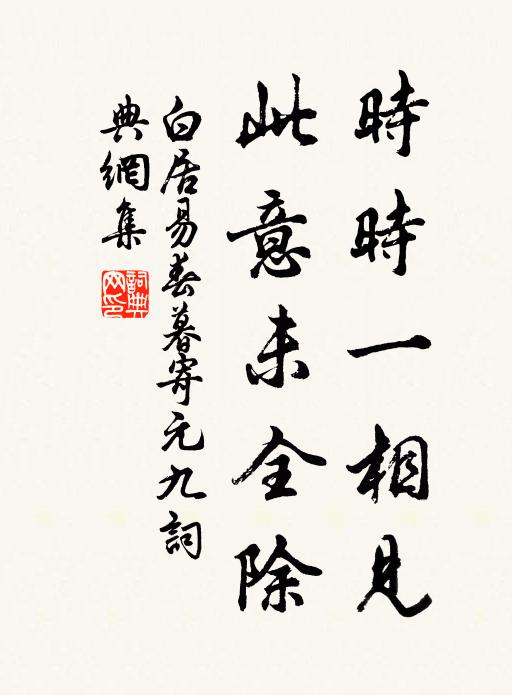 時時一相見
此意未全除
白居易春暮寄元九詞
典網集
詞典網印